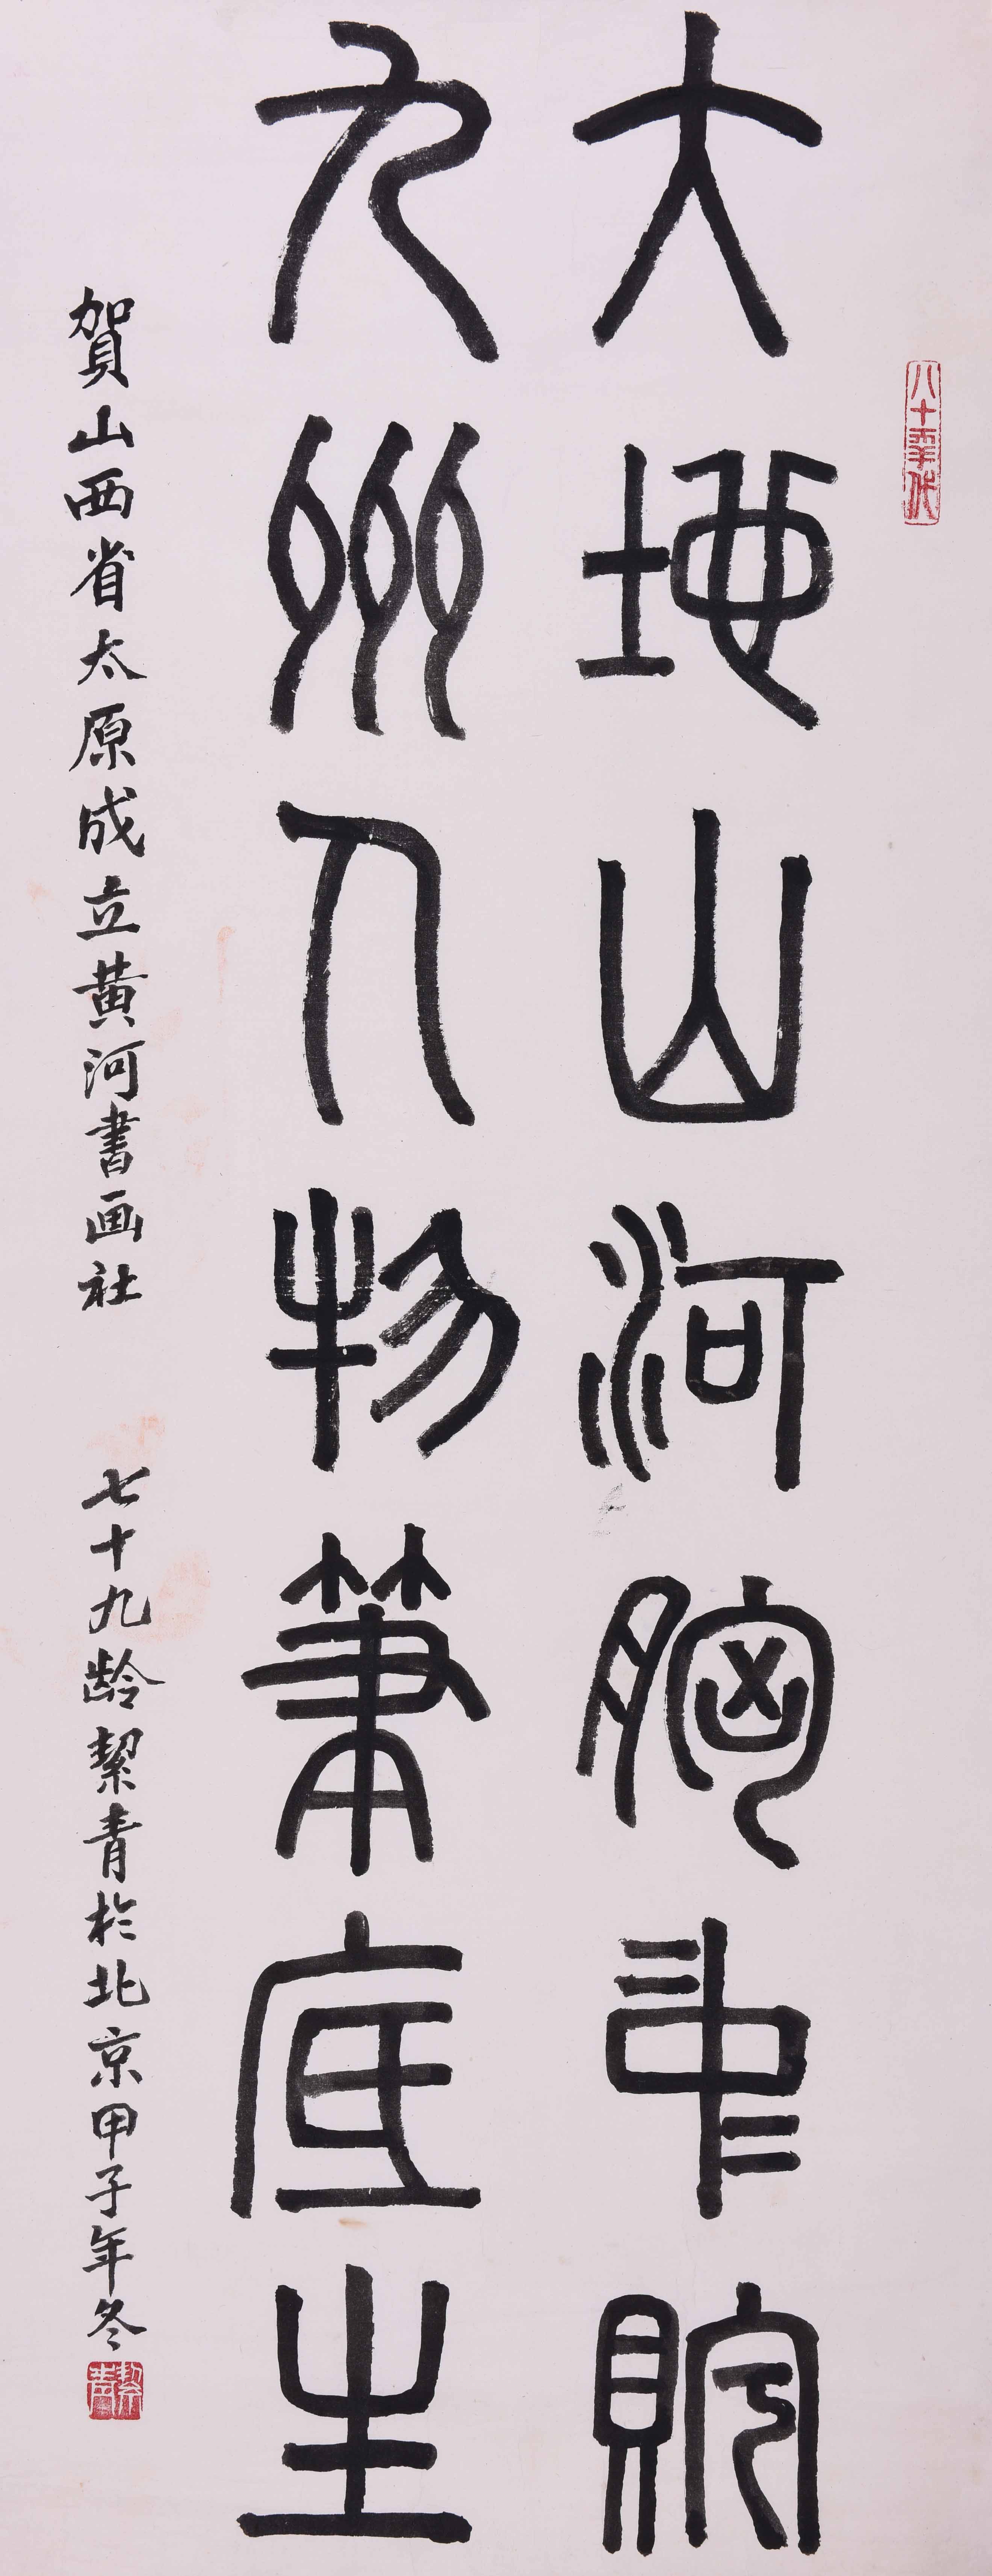 八十年代
大地山河胸中貯
九州人物筆底生
賀山西省太原成立黄河書画社　七十九龄絜青於北京甲子年冬
絜青